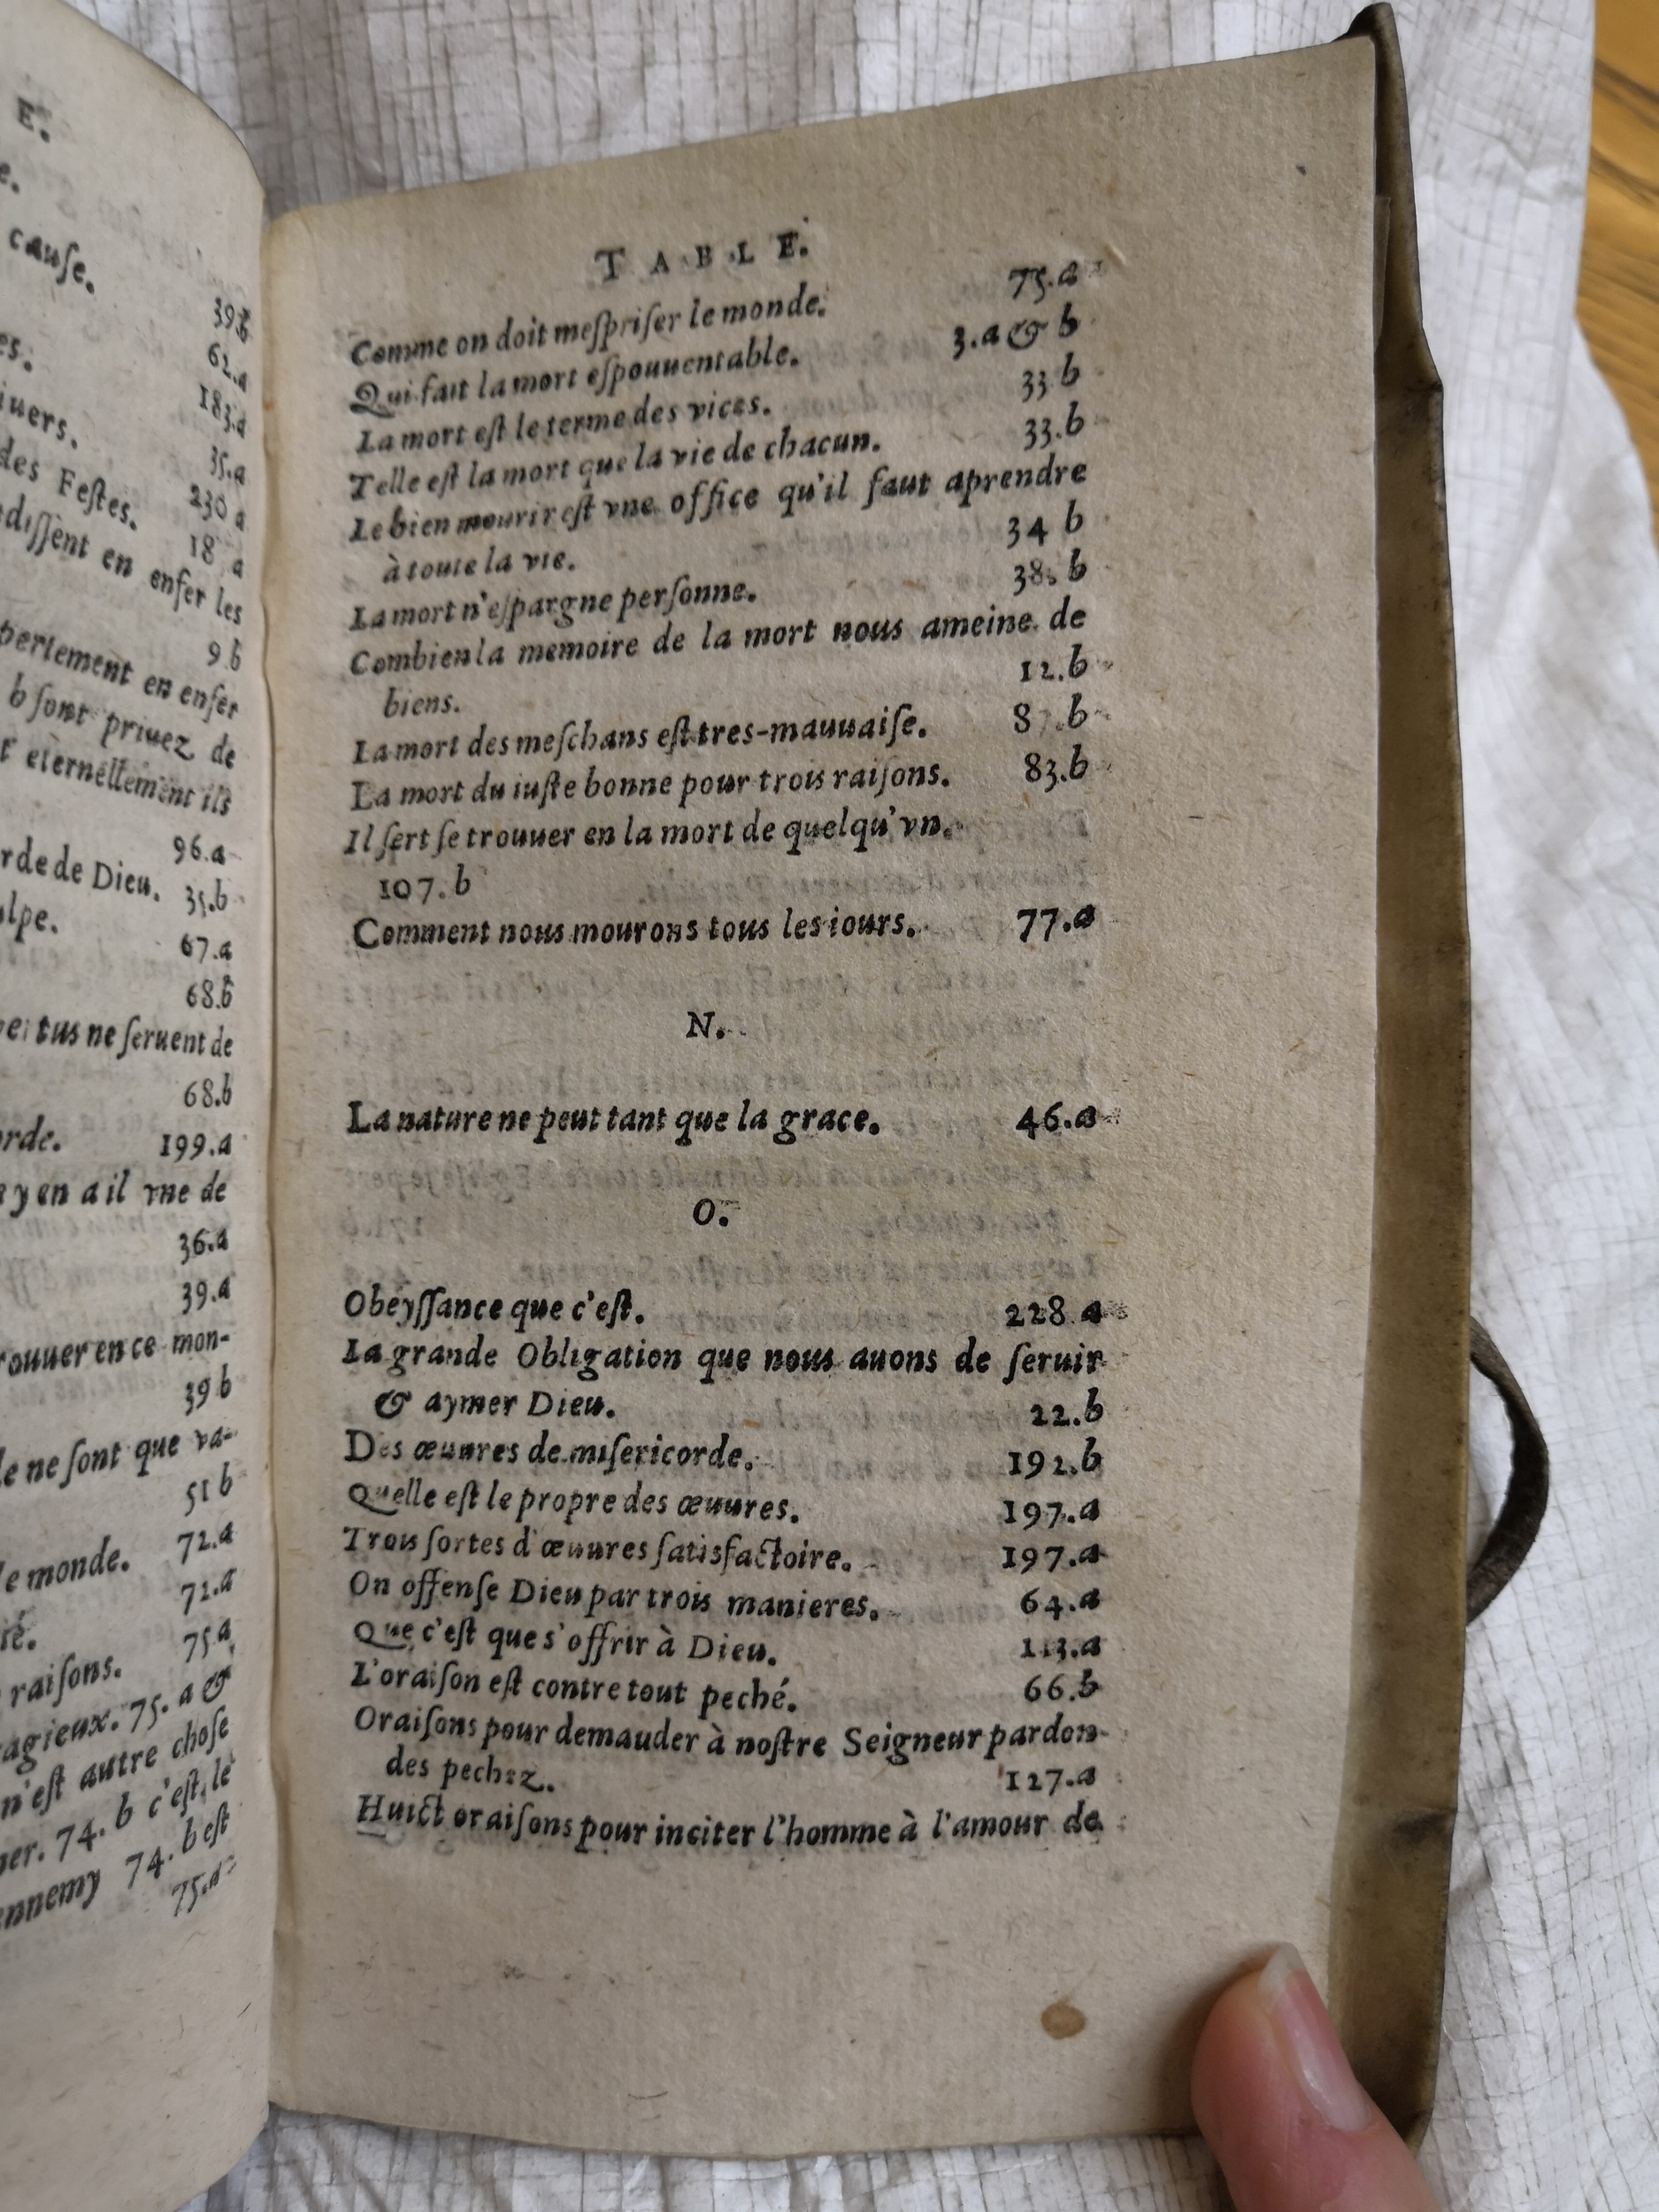 E.
e.
cauſe.
39.b
es. 62.a
iuers. 183.a
35.a
des Feſtes. 230 a
18 a
diſſent en enfer les
9 b
pertement en enfer
b ſont priuez de
eternellement ils
96.a
rde de Dieu. 35.b
ulpe. 67.a
68.b
tus ne ſeruent de
68.b
orde. 199.a
y en a il vne de
36.a
39.a
rouuer en ce mon-
39 b
le ne ſont que va-
51 b
72.a
le monde. 72.a
ié. 75 a
raiſons. 75. a &
agieux.
n'eſt autre choſe
er. 74. b c'eſt le
ennemy 74. b eſt
75.a
TABLE.
Comme on doit meſpriſer le monde. 75.a
Qui fait la mort eſpouuentable. 3.a & b
La mort eſt le terme des vices. 33 b
Telle eſt la mort que la vie de chacun. 33.b
Le bien mourir eſt vne office qu'il faut aprendre
à toute la vie. 34 b
La mort n'eſpargne perſonne. 38. b
Combien la memoire de la mort nous ameine de
biens. 12.b
La mort des meſchans eſt tres-mauuaiſe. 8 .b
La mort du iuſte bonne pour trois raiſons. 83.b
Il ſert ſe trouuer en la mort de quelqu'vn.
107.b
Comment nous mourons tous les iours. 77.a
N.
La nature ne peut tant que la grace. 46.a
O.
Obeyſſance que c'eſt. 228.a
La grande Obligation que nous auons de ſeruir
& aymer Dieu. 22.b
Des œuures de miſericorde. 192.b
Quelle eſt le propre des œuures. 197.a
Trois ſortes d'œuures ſatisfactoire. 197.a
On offenſe Dieu par trois manieres. 64.a
Que c'eſt que s'offrir à Dieu. 113.a
L'oraiſon eſt contre tout peché. 66.b
Oraiſons pour demauder à noſtre Seigneur pardon
des pechez. 127.a
Huict oraiſons pour inciter l'homme à l'amour de